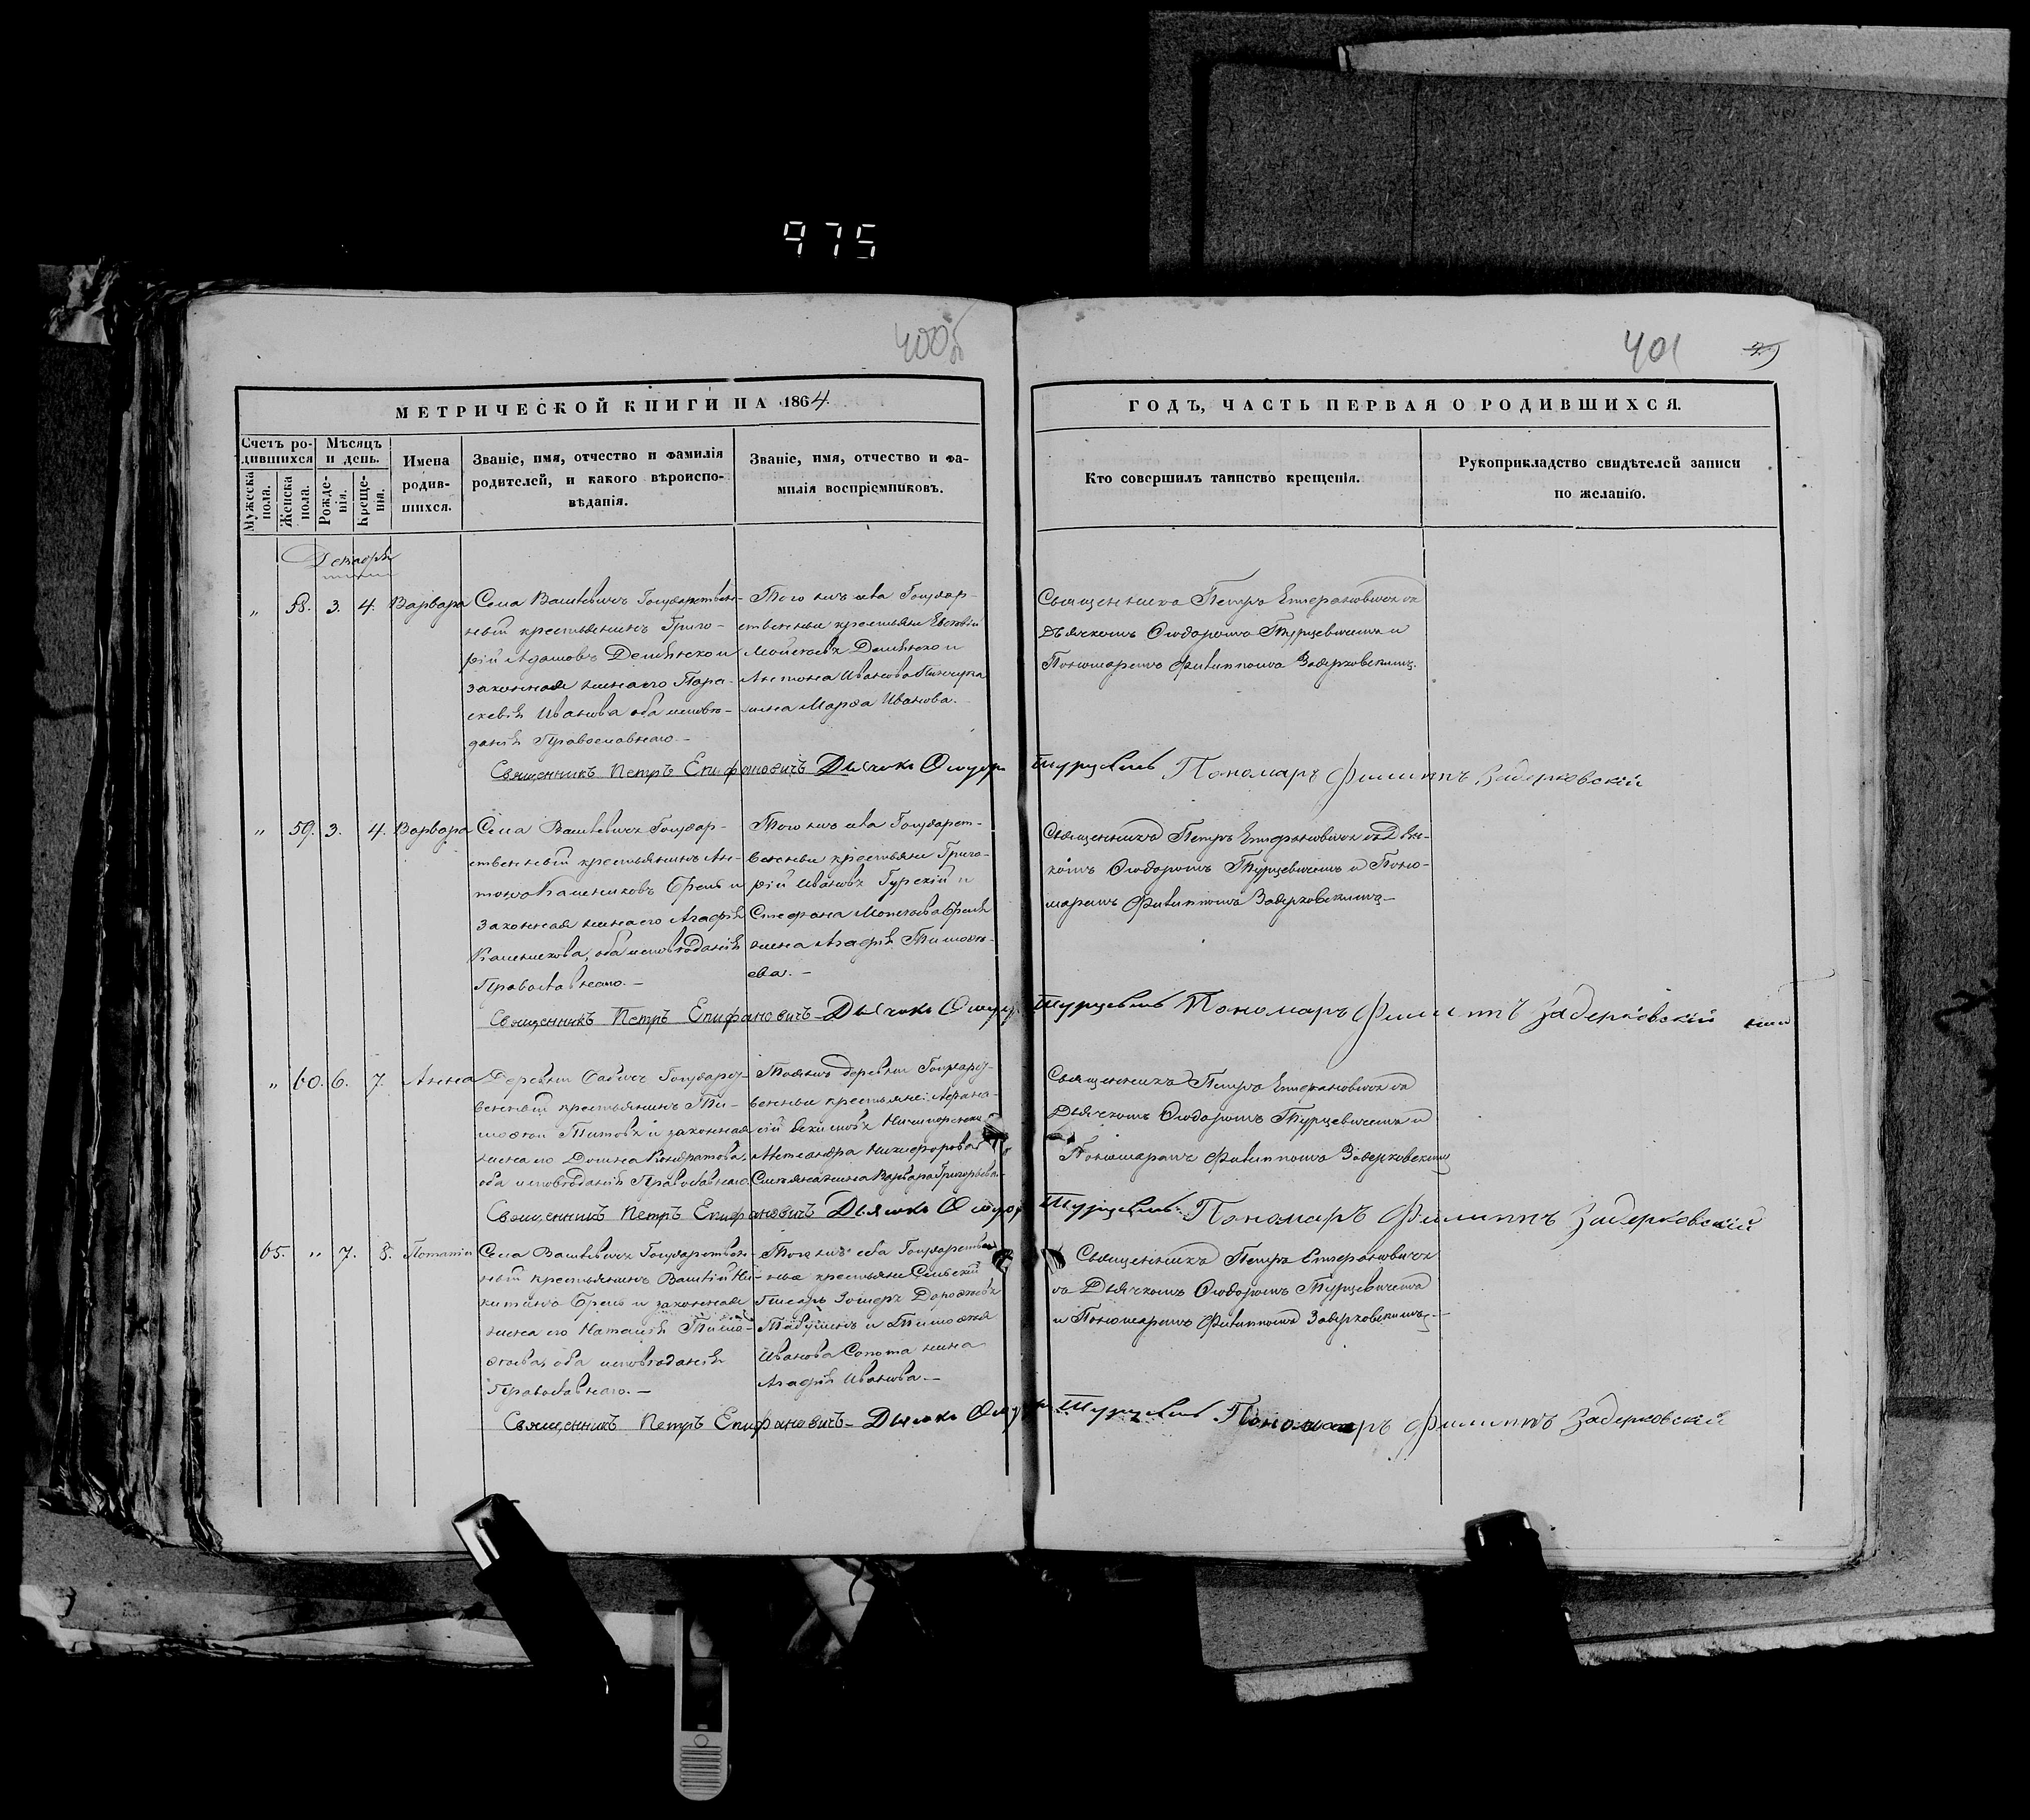 975
400об
401
МЕТРИЧЕСКОЙ КНИГИ НА 1864
ГОДЪ, ЧАСТЬ ПЕРВАЯ О РОДИВШИХСЯ.
Счетъ родившихся
Мужеска пола.
Женска пола.
Мѣсяцъ и день.
Рожденія.
Крещенія.
Имена родившихся.
Званіе, имя, отчество и фамилія
родителей, и какого вѣроиспо-
вѣданія.
Званіе, имя, отчество и фа-
милія воспріемниковъ.
Кто совершилъ таинство крещенія.
Рукоприкладство свидѣтелей записи
по желанію.
Декабрь
„ 58. 3. 4. Варвара
Села Вашкевичъ Государствен-
ный крестьянинъ Григо-
рій Адамовъ Демянско и
законная жена его Пара-
скевія Иванова оба исповѣ-
данія Православнаго.-
Того жъ села Государ-
ственные крестьяне
Демянско и
Антона Иванова
жена Марѳа Иванова.
Священникъ Петръ Епифановичъ съ
Дьячкомъ Ѳеодоромъ Турцевичемъ и
Пономаремъ Филиппомъ Задерковскимъ.
Священникъ Петръ Епифановичъ Дьячокъ Ѳеодоръ Турцевичъ Пономаръ Филиппъ Задерковскій
„ 59. 3. 4. Варвара
Села Вашкевичъ Государ-
ственный крестьянинъ Ан-
тонъ Калениковъ Брель и
законная жена его Агафія
Каленикова, оба исповѣданія
Православнаго.-
Того жъ села Государст-
венные крестьяне Григо-
рій Ивановъ Гурскій и
Стефана Брель
жена Агафія Тимоѳе-
ева.-
Священникъ Петръ Епифановичъ съ Дьяч-
комъ Ѳеодоромъ Турцевичемъ и Поно-
маремъ Филиппомъ Задерковскимъ-
Священникъ Петръ Епифановичъ-Дьячокъ Ѳеодоръ Турцевичъ Пономаръ Филиппъ Задерковскій
„ 60. 6. 7. Анна
Деревни Государст-
венный крестьянинъ Ти-
моѳей Титовъ и законная
жена его Домна Кондратова,
оба исповѣданія Православнаго.
Тояжъ деревни Государст-
венные крестьяне: Афана-
сій
Александра Никифорова
жена Варвара Григорьева.
Священникъ Петръ Епифановичъ съ
Дьячкомъ Ѳеодоромъ Турцевичемъ и
Пономаремъ Филиппомъ Задерковскимъ
Священникъ Петръ Епифановичъ Дьячокъ Ѳеодоръ Турцевичъ Пономаръ Филиппъ Задерковскій
65. „ 7. 8. Потапій
Села Вашкевичъ Государствен-
ный крестьянинъ Василій Ни-
китинъ Брель и законная
жена его Наталія Тимо-
ѳеева, оба исповѣданія
Православнаго.-
Того жъ села Государствен-
ные крестьяне Сельскій
Писарь
и Тимоѳея
Иванова Сопота жена
Агафія Иванова.-
Священникъ Петръ Епифановичъ
съ Дьячкомъ Ѳеодоромъ Турцевичемъ
и Пономаремъ Филиппомъ Задерковскимъ.-
Священникъ Петръ Епифановичъ-Дьячокъ Ѳеодоръ Турцевичъ Пономаръ Филиппъ Задерковскій